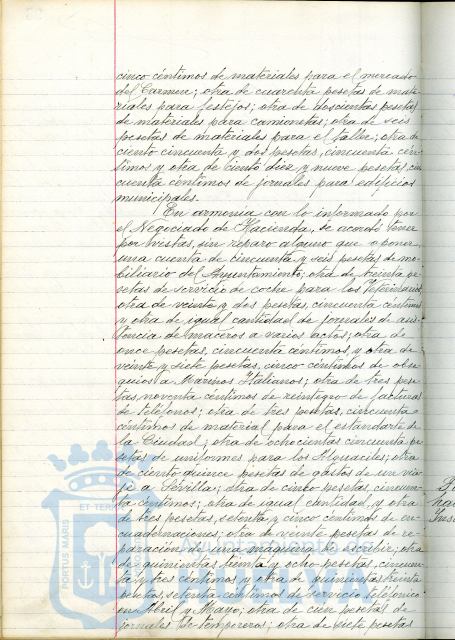 cinco céntimos de materiales para el mercado
del Carmen; otra de cuarenta pesetas de mate
riales para festejos; otra de doscientas pesetas
de materiales para camionetas; otra de seis
pesetas de materiales para el taller; otra de
ciento cincuenta y dos pesetas, cincuenta cén
timos y otra de ciento diez y nueve pesetas, cin
cuenta céntimos de jornales para edificios
municipales.
En armonía con lo informado por
el Negociado de Hacienda, se acordó tener
por vistas, sin reparo alguno que oponer,
una cuenta de cincuenta y seis pesetas de mo
biliario del Ayuntamiento; otra de treinta pe
setas de servicio de coche para los Veterinarios;
otra de veinte y dos pesetas, cincuenta céntimos
y otra de igual cantidad de jornales de asis
tencia de maceros a varios actos; otra de
once pesetas, cincuenta céntimos, y otra de
veinte y siete pesetas, cinco céntimos de obse
quios a Marinos Italianos; otra de tres pese
tas, noventa céntimos de reintegro de facturas
de teléfonos; otra de tres pesetas, cincuenta
céntimos de material para el estandarte de
la Ciudad; otra de ochocientas cincuenta pe
setas de uniformes para los Alguaciles; otra
de ciento quince pesetas de gastos de un via
je a Sevilla; otra de cinco pesetas, cincuen
ta céntimos; otra de igual cantidad, y otra
de tres pesetas, setenta y cinco céntimos de en
cuadernaciones; otra de veinte pesetas de re
paración de una máquina de escribir; otra
de quinientas treinta y ocho pesetas, cincuen
ta y tres céntimos y otra de quinientas treinta
pesetas, setenta céntimos de servicio telefónico
en Abril y Mayo; otra de cien pesetas de
jornales de temporeros; otra de siete pesetas
PORTUS MARIS
ET TERRAE
Ayuntamiento de